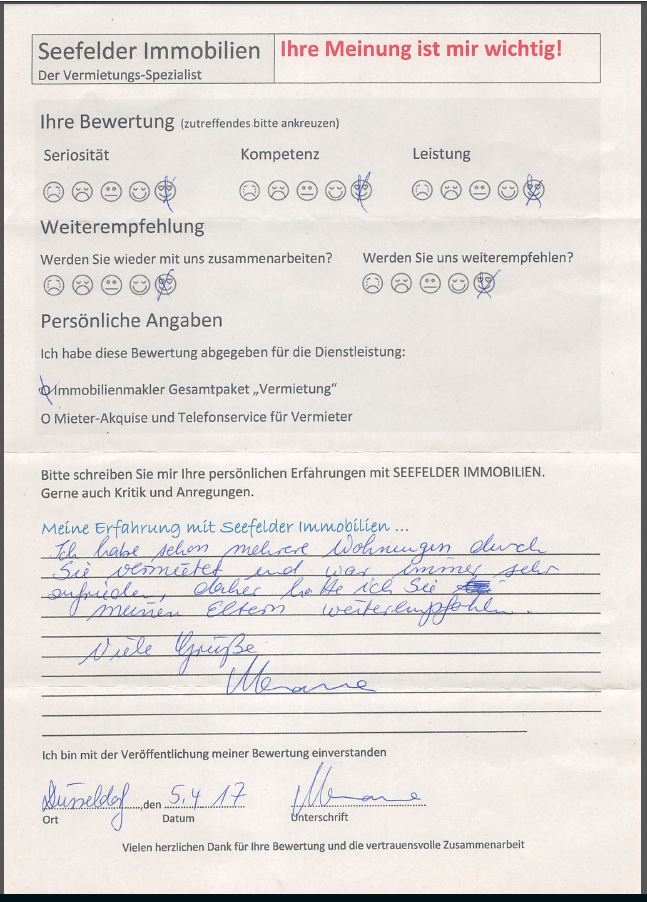 Seefelder Immobilien
Der Vermietungs-Spezialist
Ihre Meinung ist mir wichtig!
Ihre Bewertung (zutreffendes bitte ankreuzen)
Seriosität Kompetenz Leistung
Weiterempfehlung
Werden Sie wieder mit uns zusammenarbeiten? Werden Sie uns weiterempfehlen?
Persönliche Angaben
Ich habe diese Bewertung abgegeben für die Dienstleistung:
O Immobilienmakler Gesamtpaket „Vermietung“
O Mieter-Akquise und Telefonservice für Vermieter
Bitte schreiben Sie mir Ihre persönlichen Erfahrungen mit SEEFELDER IMMOBILIEN.
Gerne auch Kritik und Anregungen.
Meine Erfahrung mit Seefelder Immobilien ...
Ich habe schon mehrere Wohnungen durch
Sie vermietet und war immer sehr
zufrieden, daher hatte ich Sie
meinen Eltern weiterempfohlen.
Viele Grüße
Ich bin mit der Veröffentlichung meiner Bewertung einverstanden
Düsseldorf, den 5.4 17
Ort Datum Unterschrift
Vielen herzlichen Dank für Ihre Bewertung und die vertrauensvolle Zusammenarbeit